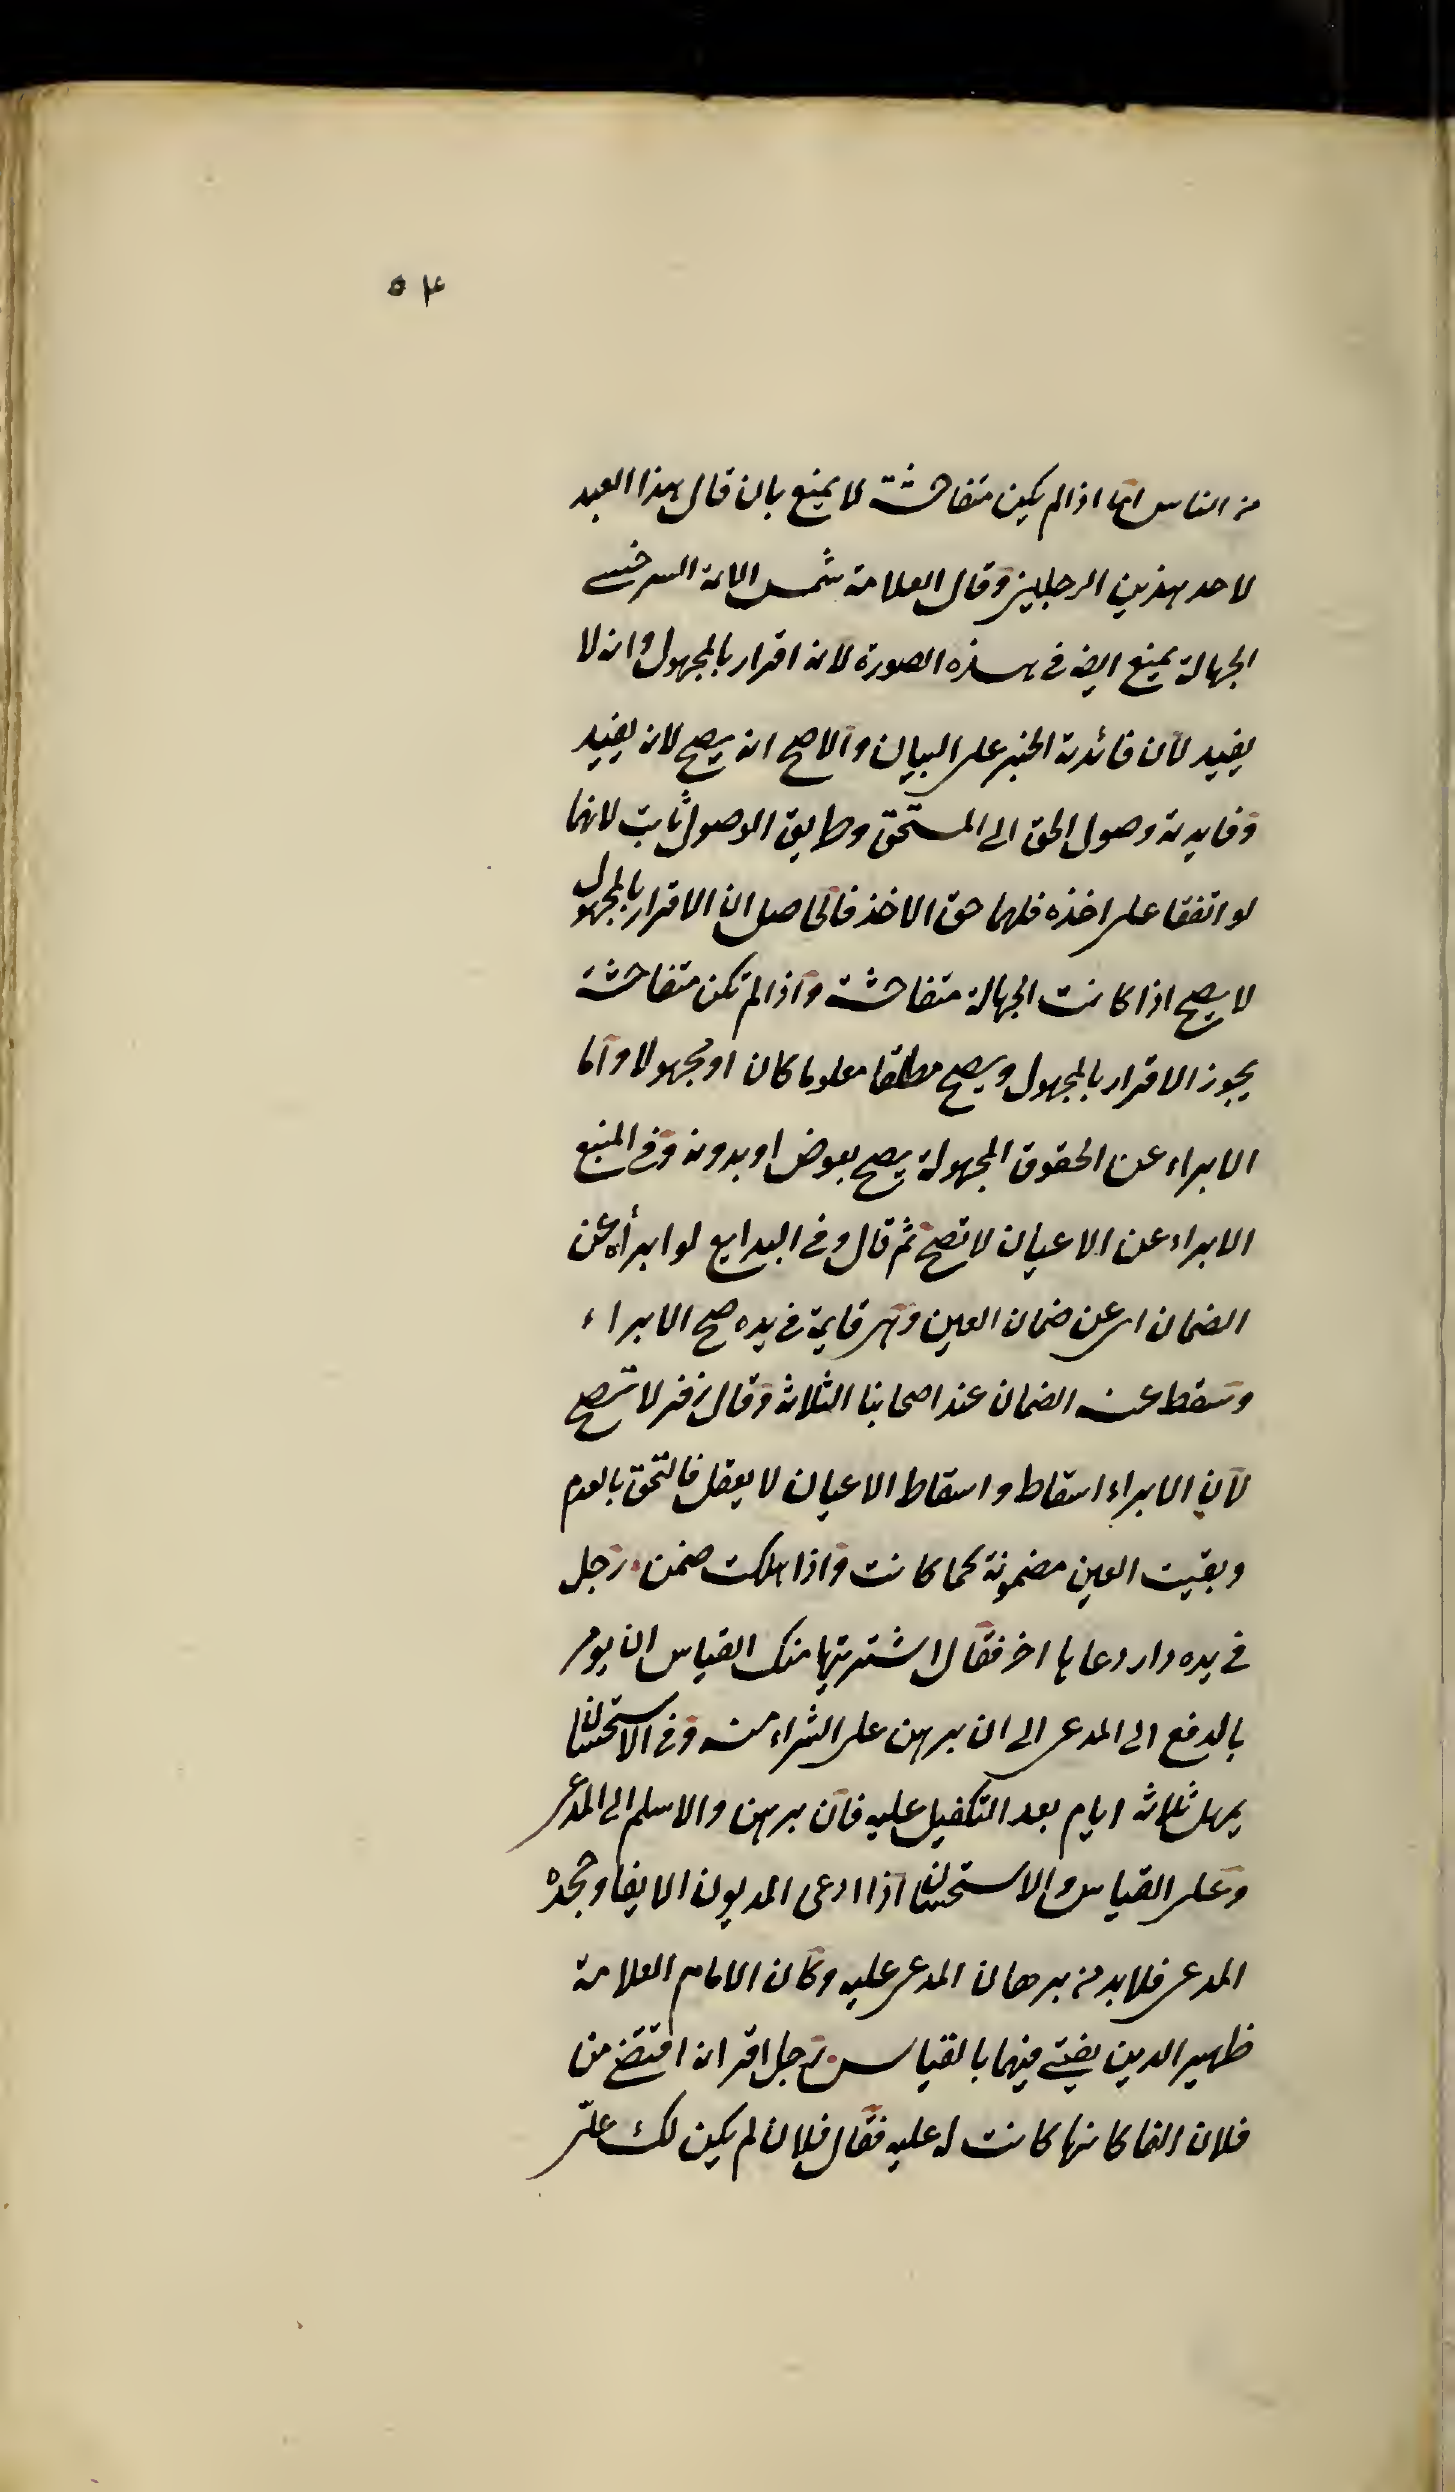 ٥٤
من الناس اما اذا لم يكن متفاحشة لا يمنع بان قال هذا العبد
لاحد هذين الرجلين وقال العلامة شمس الائمة السرخسي
الجهالة يمنع ايضا في هذه الصورة لانه اقرار بالمجهول وانه لا
يفيد لان فائدته الجبر على البيان والاصح انه يصح لانه يفيد
وفايدته وصول الحق الى المستحق وطريق الوصول ثابت لانهما
لو اتفقا على اخذه فلهما حق الاخذ فالحاصل ان الاقرار بالمجهول
لا يصح اذا كانت الجهالة متفاحشة واذا لم تكن متفاحشة
يجوز الاقرار بالمجهول ويصح مطلقا معلوما كان او مجهولا واما
الابراء عن الحقوق المجهولة يصح بعوض او بدونه وفي المنبع
الابراء عن الاعيان لا تصح ثم قال وفي البدايع لو ابرأه عن
الضمان اى عن ضمان العين وهى قايمة في يده صح الابراء
وتسقط عنه الضمان عند اصحابنا الثلاثة وقال زفر لا تصح
لان الابراء اسقاط واسقاط الاعيان لا يعقل فالتحق بالعدم
وبقيت العين مضمونة كما كانت واذا هلكت ضمن رجل
في يده دار دعاها اخر فقال اشتريتها منك القياس ان يومر
بالدفع الى المدعى الى ان برهن على الشراء منه وفي الاستحسان
يمهل ثلاثة ايام بعد التكفيل عليه فان برهن والا سلم الى المدعى
وعلى القياس والاستحسان اذا ادعى المديون الايفا وجحده
المدعى فلابد من برهان المدعى عليه وكان الامام العلامة
ظهير الدين يفتى فيهما بالقياس رجل اقر انه اقتضى من
فلان الفا كانها كانت له عليه فقال فلان لم يكن لك على